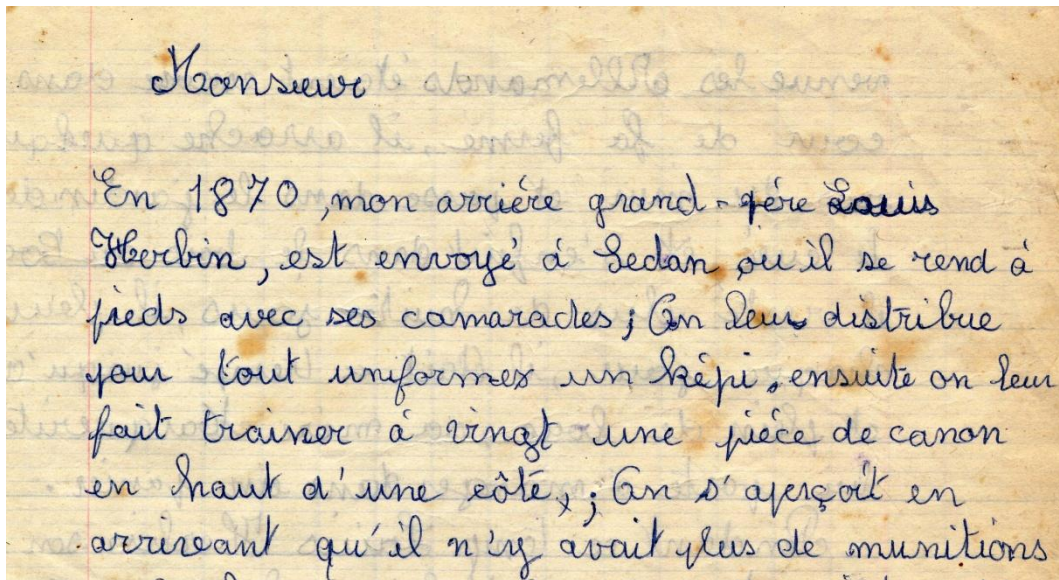 Monsieur
En 1870, mon arriére grand-pére Louis
Herbin, est envoyé á Sedan, ou il se rend á
pieds avec ses camarades; On leur distribue
pour tout uniformes un képi, ensuite on leur
fait trainer á vingt une piéce de canon
en haut d'une côté,; On s'aperçoit en
arriveant qu'il n'y avait plus de munitions